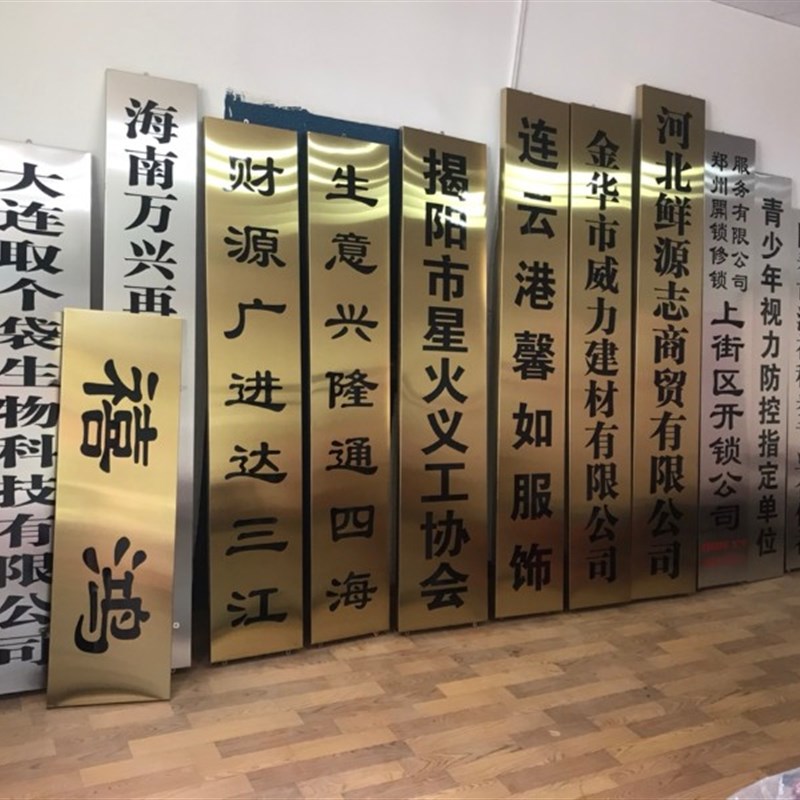 大连取个袋生物科技有限公司
海南万兴再
禧鸿
财源广进达三江
生意兴隆通四海
揭阳市星火义工协会
连云港馨如服饰
金华市威力建材有限公司
河北鲜源志商贸有限公司
郑州開锁修锁
服务有限公司
上街区开锁公司
青少年视力防控指定单位